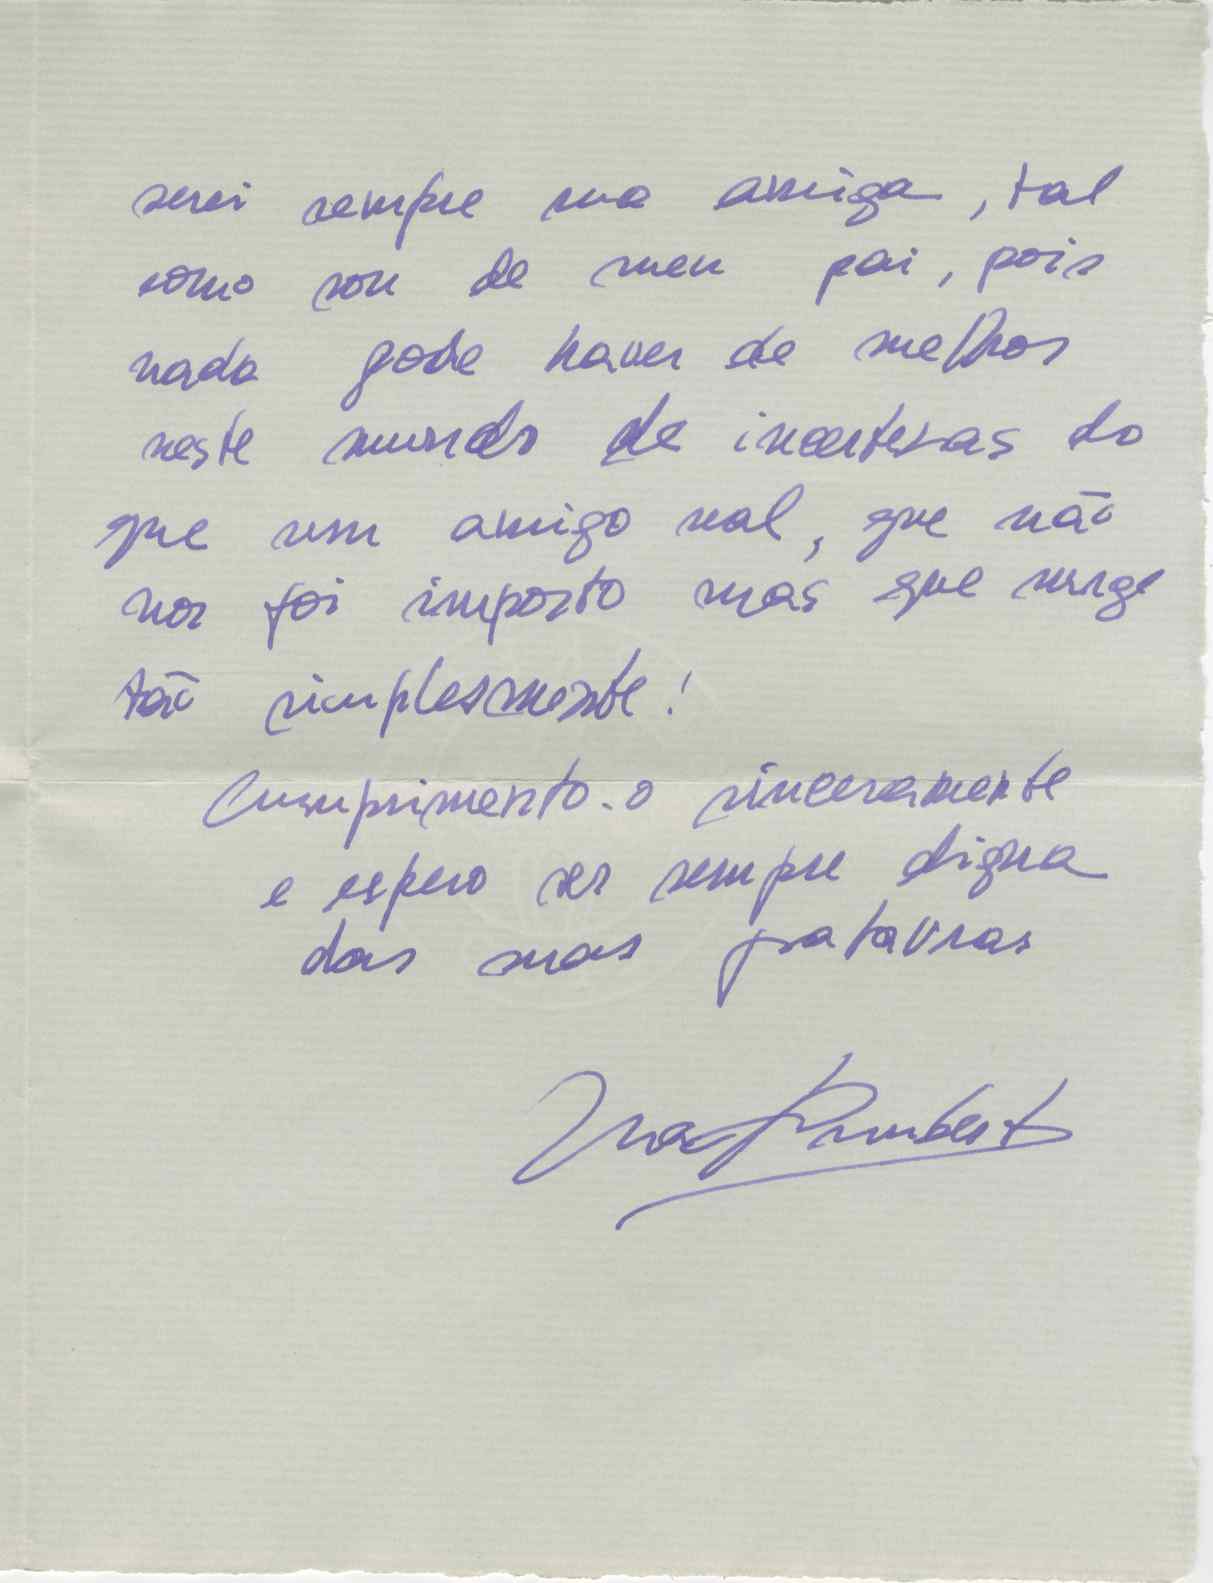 serei sempre sua amiga, tal
como sou de meu pai, pois
nada pode haver de melhor
neste mundo de incertezas do
que um amigo real, que não
nos foi imposto mas que surge
tão simplesmente!
Cumprimento-o sinceramente
e espero ser sempre digna
das suas palavras